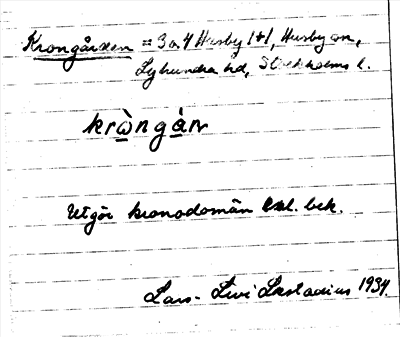 Krongården = 3 o. 4 Husby 1+1, Husby sn,
Lyhundra hd, Stockholms l.
krὼngὰn
Utgör kronodomän enl. bek.
Lars-Levi Læstadius 1934.